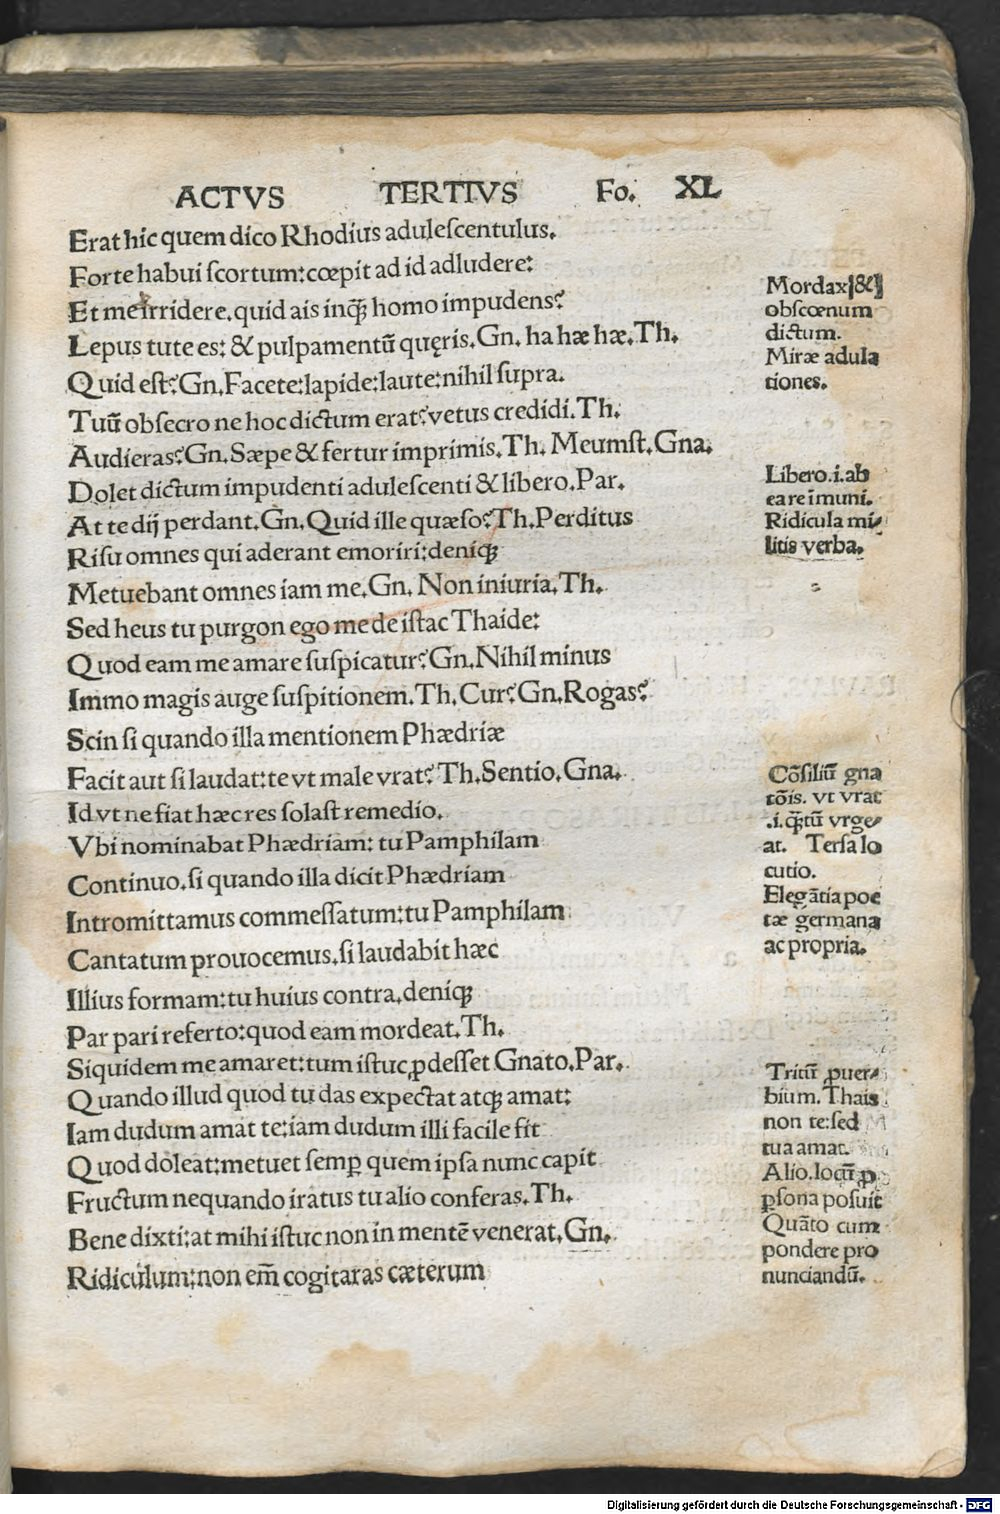 ACTVS TERTIVS Fo. XL
Erat hic quem dico Rhodius aduleſcentulus.
Forte habui ſcortum: cœpit ad id adludere:
Et me irridere. quid ais inqꝫ homo impudens?
Lepus tute es: & pulpamentū quęris. Gn. ha hæ hæ. Th.
Quid eſt? Gn. Facete: lapide: laute: nihil ſupra.
Tuū obſecro ne hoc dictum erat? vetus credidi. Th.
Audieras? Gn. Sæpe & fertur imprimis. Th. Meumſt. Gna.
Dolet dictum impudenti aduleſcenti & libero. Par.
At te dij perdant. Gn. Quid ille quæſo? Th. Perditus
Riſu omnes qui aderant emoriri: deniqꝫ
Metuebant omnes iam me. Gn. Non iniuria. Th.
Sed heus tu purgon ego me de iſtac Thaide:
Quod eam me amare ſuſpicatur? Gn. Nihil minus
Immo magis auge ſuſpitionem. Th. Cur? Gn. Rogas?
Scin ſi quando illa mentionem Phædriæ
Facit aut ſi laudat: te vt male vrat? Th. Sentio. Gna.
Id vt ne fiat hæc res ſolaſt remedio.
Vbi nominabat Phædriam: tu Pamphilam
Continuo. ſi quando illa dicit Phædriam
Intromittamus commeſſatum: tu Pamphilam
Cantatum prouocemus. ſi laudabit hæc
Illius formam: tu huius contra. deniqꝫ
Par pari referto: quod eam mordeat. Th.
Siquidem me amaret: tum iſtuc ꝓdeſſet Gnato. Par.
Quando illud quod tu das expectat atqꝫ amat:
Iam dudum amat te: iam dudum illi facile fit
Quod doleat: metuet ſemꝑ quem ipſa nunc capit
Fructum nequando iratus tu alio conferas. Th.
Bene dixti: at mihi iſtuc non in mentē venerat. Gn.
Ridiculum: non em̄ cogitaras cæterum
Mordax [&]
obſcœnum
dictum.
Miræ adula
tiones.
Libero .i. ab
ea re īmuni.
Ridicula mi-
litis verba.
Cōſiliū gna
tōis. vt vrat
.i. qꝫtū vrge-
at. Terſa lo
cutio.
Elegātia poe
tæ germana
ac propria.
Tritū ꝓuer-
bium. Thais
non te: ſed
tua amat.
Alio. locū ꝓ
ꝑſona poſuit
Quāto cum
pondere pro
nunciandū.
Digitalisierung gefördert durch die Deutsche Forschungsgemeinschaft - DFG